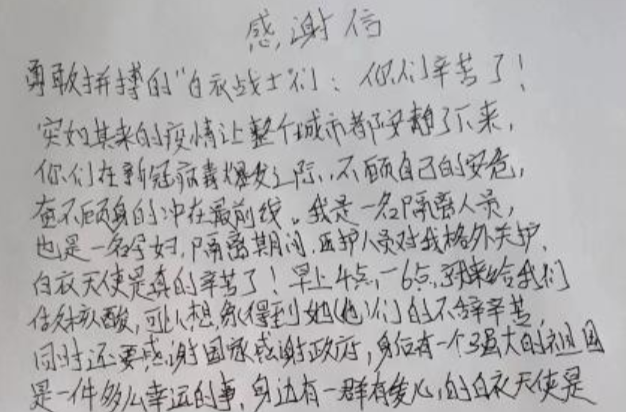 感谢信
勇敢拼搏的"白衣战士"们：你们辛苦了！
突如其来的疫情让整个城市都安静了下来，
你们在新冠病毒爆发之际，不顾自己的安危，
奋不顾身的冲在最前线。我是一名隔离人员，
也是一名孕妇，隔离期间，医护人员对我格外关护，
白衣天使是真的辛苦了！早上4点，6点，到来给我们
做核酸，可以想象得到她(他)们的不辞辛苦
同时还要感谢国家感谢政府，身后有一个强大的祖国
是一件多么幸运的事，身边有一群有爱心的白衣天使是